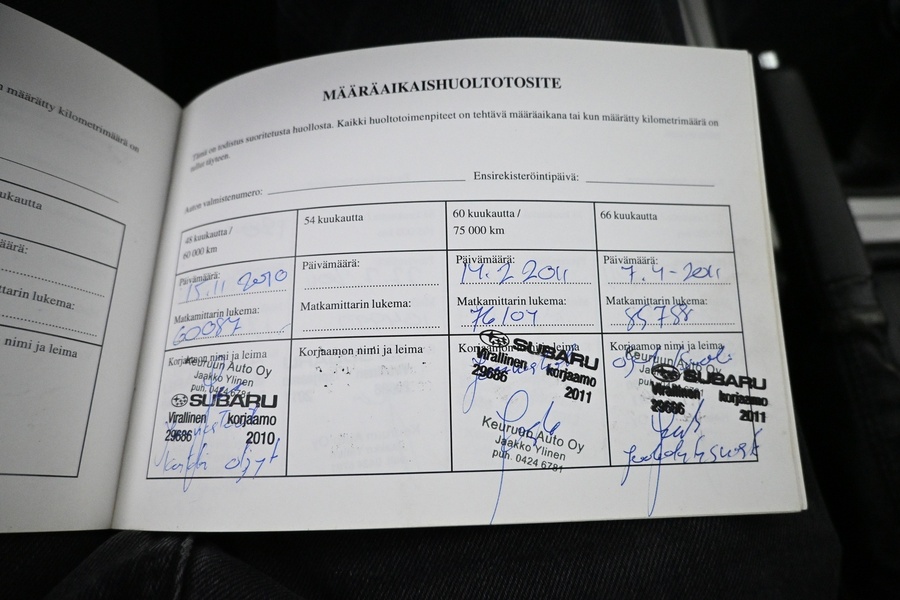 n määrätty kilometrimäärä on
ukautta
äärä:
ttarin lukema:
nimi ja leima
MÄÄRÄAIKAISHUOLTOTOSITE
Tämä on todistus suoritetusta huollosta. Kaikki huoltotoimenpiteet on tehtävä määräaikana tai kun määrätty kilometrimäärä on
tullut täyteen.
Auton valmistenumero: Ensirekisteröintipäivä:
48 kuukautta /
60 000 km
Päivämäärä:
15.11 2010
Matkamittarin lukema:
60087
Korjaamon nimi ja leima
Keuruun Auto Oy
Jaakko Ylinen
puh. 0424 6781
SUBARU
Virallinen korjaamo
29686 2010
54 kuukautta
Päivämäärä:
Matkamittarin lukema:
Korjaamon nimi ja leima
60 kuukautta /
75 000 km
Päivämäärä:
14.2 2011
Matkamittarin lukema:
76104
Korjaamon nimi ja leima
SUBARU
Virallinen korjaamo
29686 2011
Keuruun Auto Oy
Jaakko Ylinen
puh. 0424 6781
66 kuukautta
Päivämäärä:
7.4-2011
Matkamittarin lukema:
85788
Korjaamon nimi ja leima
Keuruun Auto Oy
SUBARU
Virallinen korjaamo
29686 2011